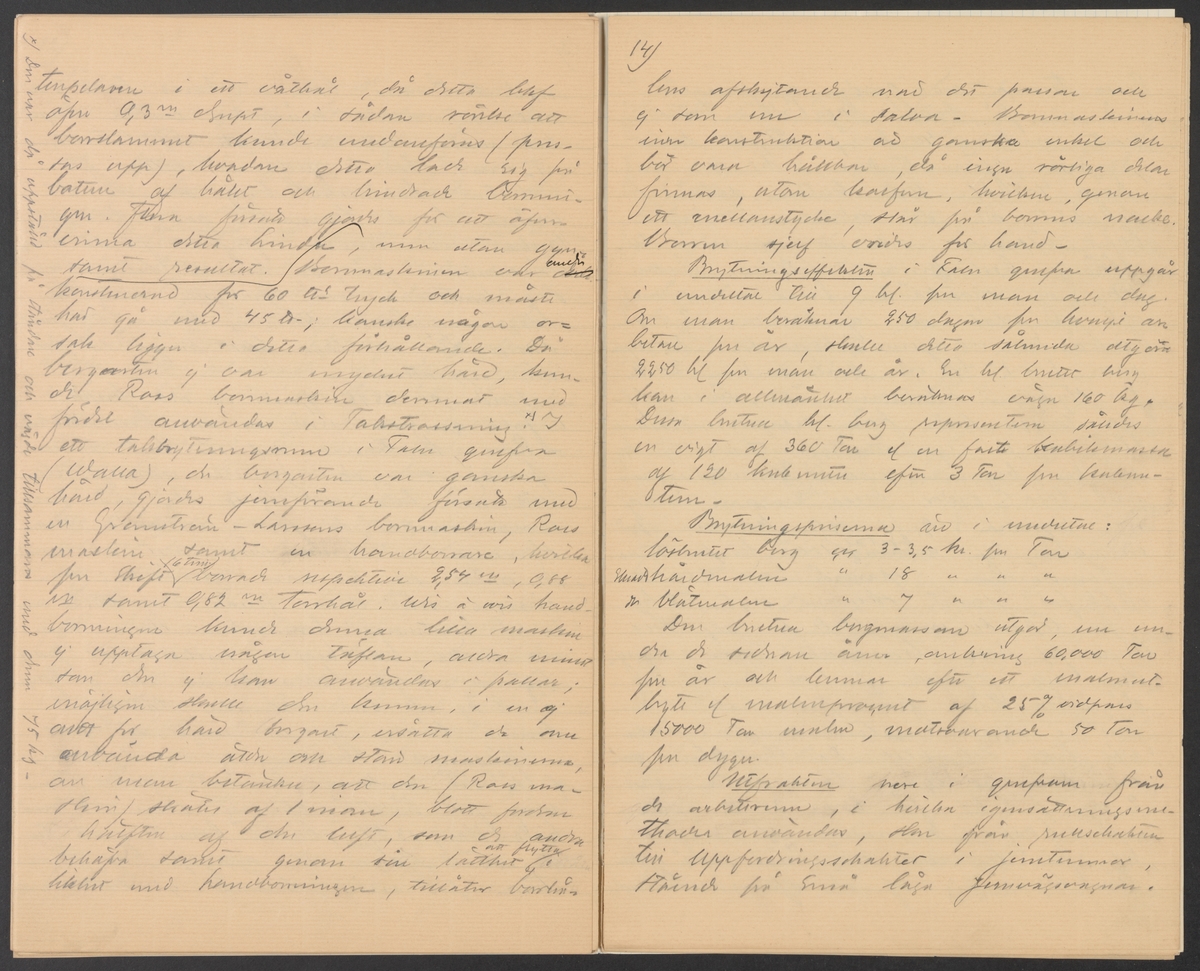 i ett våthål, då detta blef
öfver 0,3 m djupt, i sådan rörelse att
borrslammet kunde undanföras (pres-
sas upp), hvadan detta lade sig på
botten af hålet och hindrade borrnin-
gen. Flera försök gjordes för att öfver-
vinna detta hinder, men utan gynn-
samt resultat. (Borrmaskinen var endast
konstruerad för 60 tryck och måste
här gå med 45 ; kanske någon or-
sak ligger i detta förhållande. Då
bergarten ej var mycket hård, kun-
de Ross borrmaskin dermed med
fördel användas i Takstrossning. x) I
ett takbrytningsrum i Falu grufva
(Wálla), der bergarten var ganska
hård, gjordes jemförande försök med
en Granström-Larssons borrmaskin, Ross
maskin samt en handborrare, hvilka
per skift (6 tim) borrade respektive 2,54 m, 0,88
m samt 0,82 m torrhål. Vis à vis hand-
borrningen kunde denna lilla maskin
ej upptaga någon täflan, aldra minst
som den ej kan användas i pallar;
möjligen skulle den kunna, i en ej
allt för hård bergart, ersätta de nu
använda äldre och större maskinerna,
om man betänker, att den (Ross ma-
skin) skötes af 1 man, blott fordrar
hälften af den luft, som de andra
behöfva samt genom sin lätthet att flytta i
likhet med handborrningen, tillåter borrhå-
x) Den var då uppställd på ståndare och vägde tillsammans med denna 75 kg -
14)
lens afskjutande när det passar och
ej som nu i salva - Borrmaskinens
inre konstruktion är ganska enkel och
bör vara hållbar, då inga rörliga delar
finnas, utom kolfven, hvilken, genom
ett mellanstycke, slår på borrens nacke.
Borren sjelf vrides för hand -
Brytningseffekten i Falu grufva uppgår
i medeltal till 9 hl. per man och dag.
Om man beräknar 250 dagar för hvarje ar-
betare per år, skulle detta sålunda utgöra
2250 hl per man och år. En hl brutet berg
kan i allmänhet beräknas väga 160 kg.
Dessa brutna hl. berg representera således
en vigt af 360 Ton el en fast kubikmassa
af 120 kubikmeter efter 3 Ton per kubikme-
ter. -
Brytningspriserna äro i medeltal:
löstbrutet berg ger 3-3,5 kr. per Ton
hårdmalm " 18 " " "
blötmalm " 7 " " "
Den brutna bergmassan utgör, nu un-
der de sednare åren, omkring 60,000 Ton
per år och lemnar efter ett malmut-
byte el malmprocent af 25 % vidpass
15000 Ton malm, motsvarande 50 Ton
per dygn.
Utfrakten nere i grufvan från
de arbetsrum, i hvilka igensättningsme-
thoden användes, sker från rullschakten
till Uppfordringsschaktet i jerntunnor,
stående på små låga jernvägsvagnar.